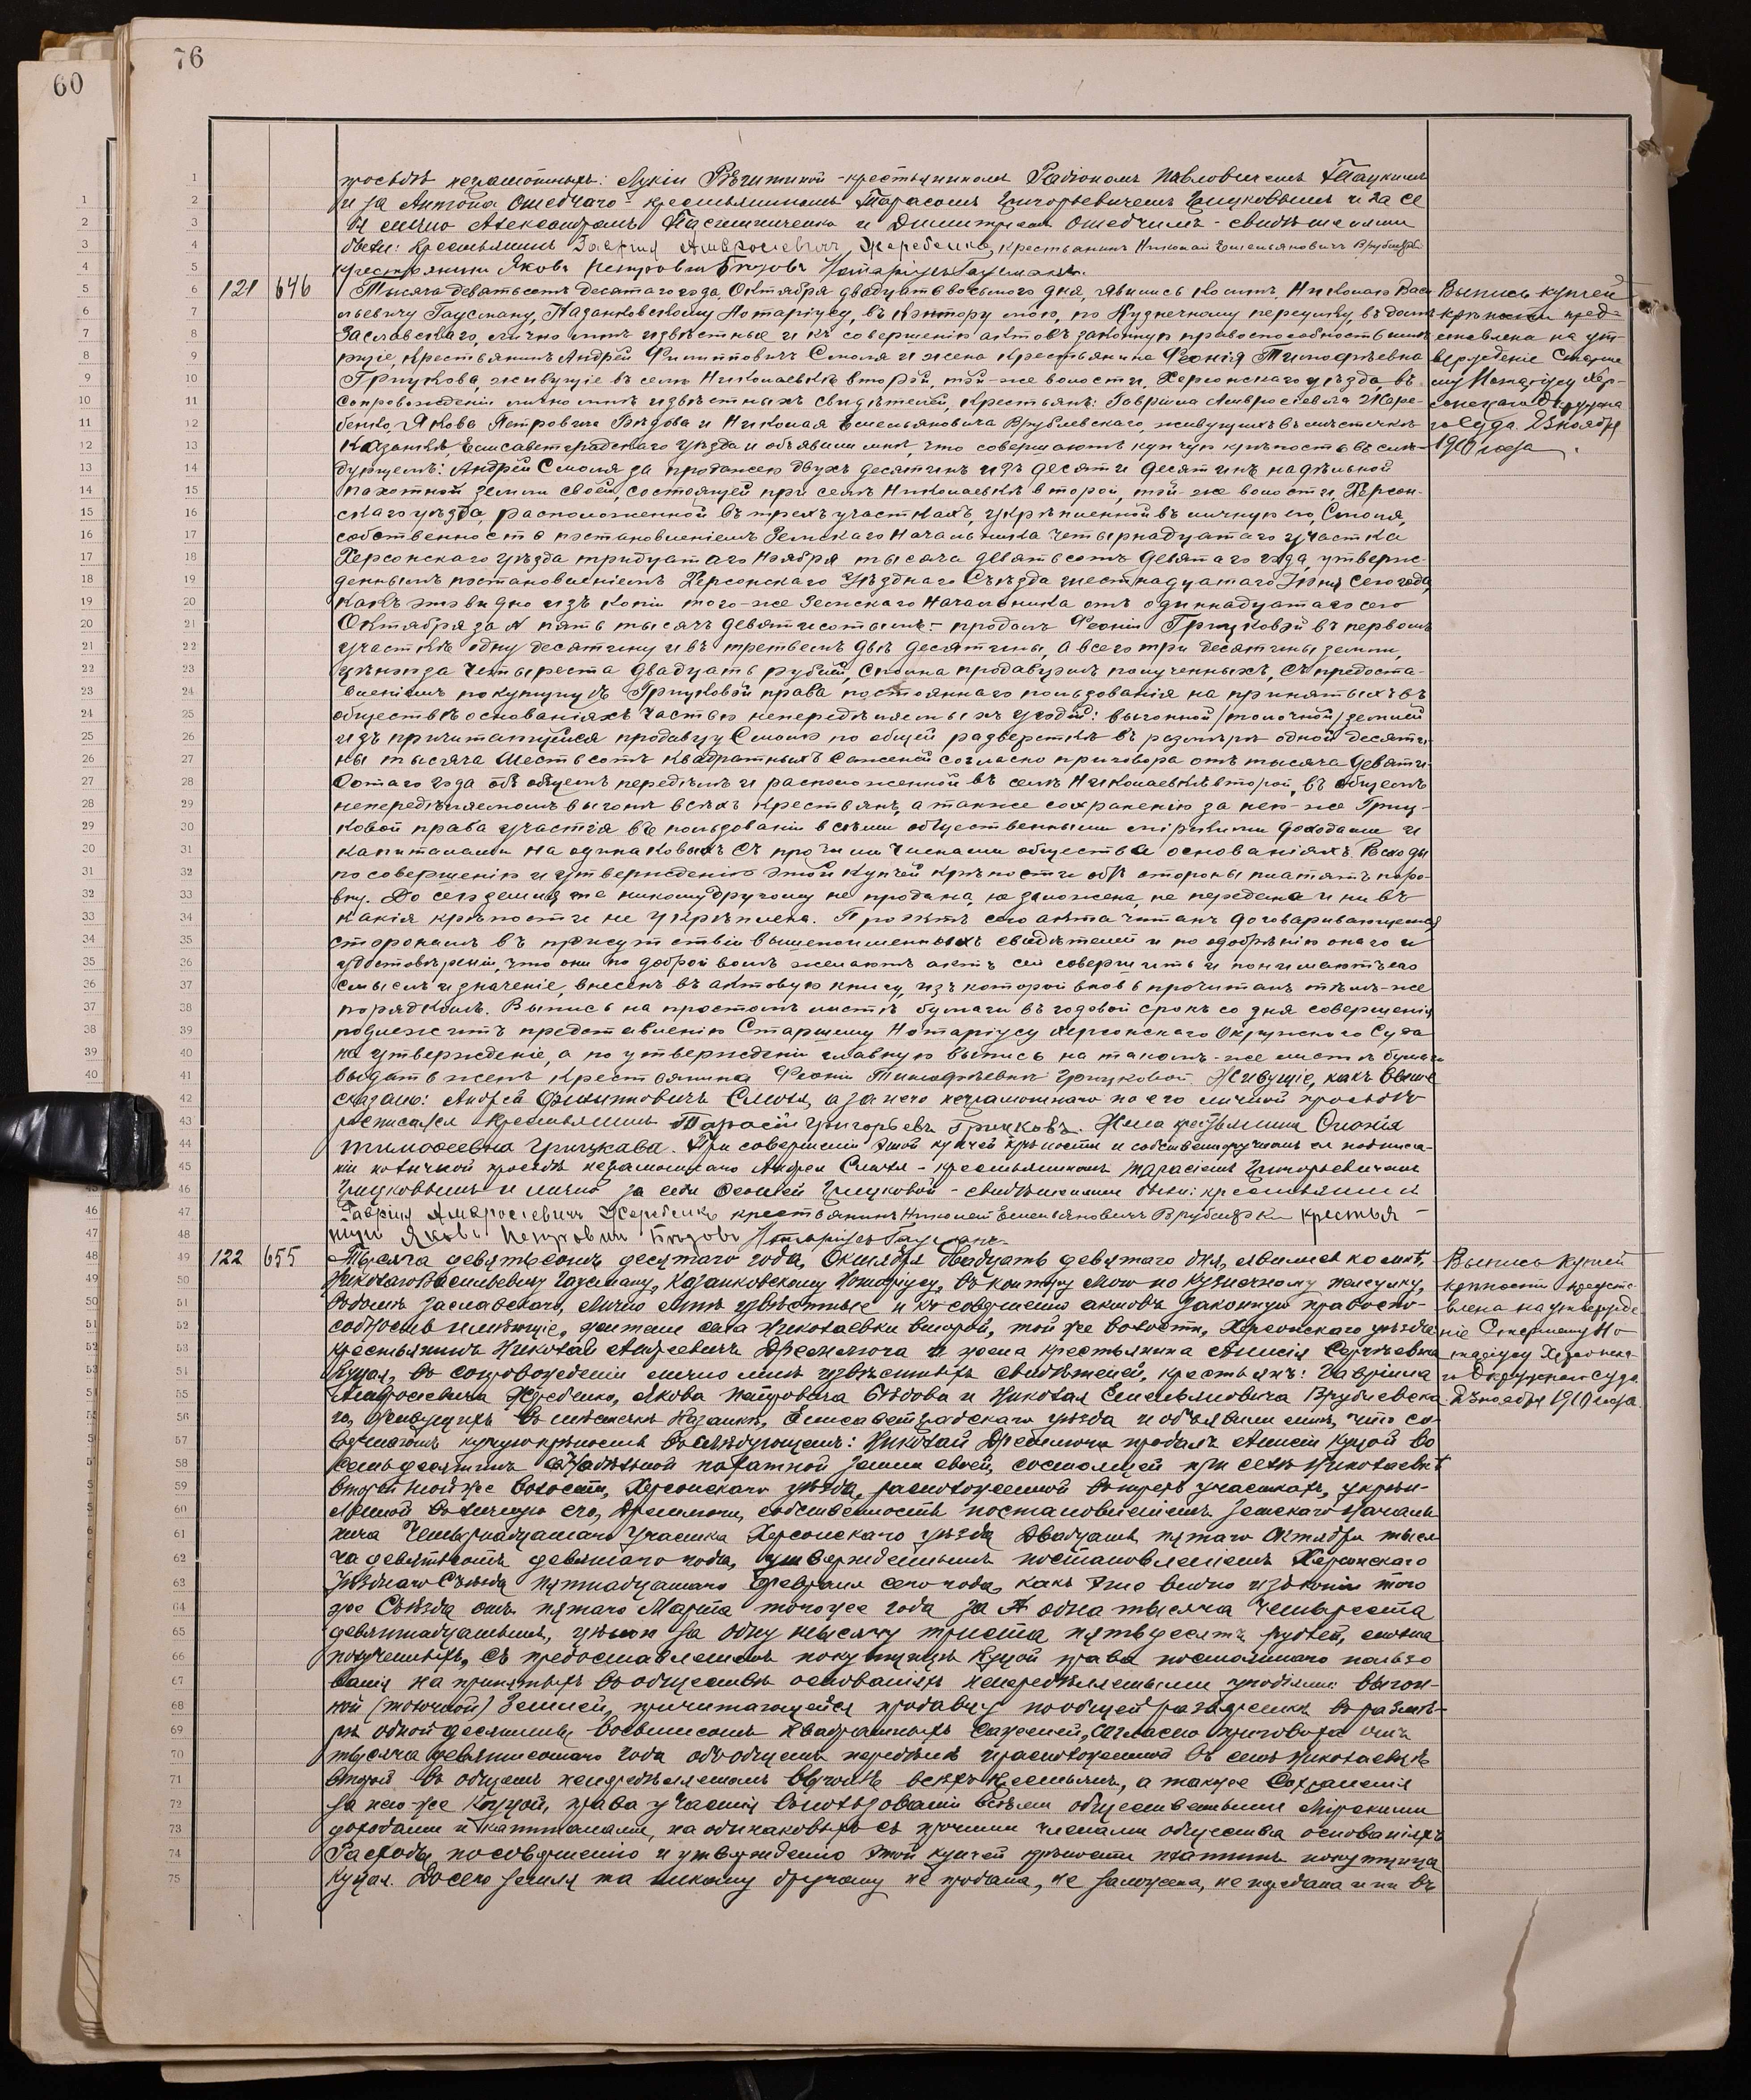 60
76
просьбѣ неграмотныхъ: Лукіи Рѣпитиной - крестьяниномъ Радіономъ Павловичемъ Тацкимъ
и за Антона Ошедчаго - крестьяниномъ Тарасомъ Григорьевичемъ Грицковымъ и за се
бя лично Александромъ и Димитріемъ Ошедчимъ - свидѣтелями
были: Крестьянинъ Гаврiилъ Амвросіевичъ Жеребенко, крестьянинъ Николай Емельяновичъ Врублевскій
крестьянинъ Яковъ Петровичъ Бѣдовъ Нотаріусъ Гаусманъ.
121 646 Тысяча девятьсотъ десятаго года, Октября двадцать восьмого дня, явились ко мнѣ, Николаю Васи
льевичу Гаусману, Казанковскому Нотаріусу, въ контору мою, по Кузнечному переулку, въ домѣ
Заславскаго, лично мнѣ извѣстные и къ совершенію актовъ законную правоспособность имѣю
щіе, крестьянинъ Андрей Филипповичъ Смоля и жена крестьянина Феонія Тимофѣевна
Грицкова, живущіе въ селѣ Николаевкѣ второй, той-же волости, Херсонскаго уѣзда, въ
сопровожденіи лично мнѣ извѣстныхъ свидѣтелей, крестьянъ: Гавріила Амвросіевича Жере-
бенко, Якова Петровича Бѣдова и Николая Емельяновича Врублевскаго, живущихъ въ мѣстечкѣ
Казанкѣ, Елисаветградскаго уѣзда и объявили мнѣ, что совершаютъ купчую крѣпость въ слѣ-
дующемъ: Андрей Смоля за продажею двухъ десятинъ изъ десяти десятинъ надѣльной
пахотной земли своей, состоящей при селѣ Николаевкѣ второй, той-же волости, Херсон-
скаго уѣзда, расположенной въ трехъ участкахъ, укрѣпленной въ личную его, Смоля,
собственность постановленіемъ Земскаго Начальника четырнадцатаго участка
Херсонскаго уѣзда тридцатаго Ноября тысяча девятьсотъ девятаго года, утверж-
деннымъ постановленіемъ Херсонскаго Уѣзднаго Съѣзда шестнадцатаго Іюня сего года,
какъ это видно изъ копіи того-же Земскаго Начальника отъ одиннадцатаго сего
Октября за № пять тысячъ девятисотымъ - продалъ Феоніи Грицковой въ первомъ
участкѣ одну десятину и въ третьемъ двѣ десятины, а всего три десятины земли,
цѣною за четыреста двадцать рублей, сполна продавцомъ полученныхъ, съ предоста-
вленіемъ покупщицѣ Грицковой права постояннаго пользованія на принятыхъ въ
обществѣ основаніяхъ частью непередѣляемыхъ угодій: выгонной (толочной) землей
изъ причитающейся продавцу Смолѣ по общей разверсткѣ въ размѣрѣ одной десяти-
ны тысяча шестьсотъ квадратныхъ саженей согласно приговора отъ тысяча девяти-
сотаго года объ общемъ передѣлѣ и расположенной въ селѣ Николаевкѣ второй, въ общемъ
непередѣляемомъ выгонѣ всѣхъ крестьянъ, а также сохраненію за нею-же Гриц-
ковой права участія въ пользованіи всѣми общественными мірскими доходами и
капиталами на одинаковыхъ съ прочими членами общества основаніяхъ. Расходы
по совершенію и утвержденію этой купчей крѣпости обѣ стороны платятъ поро-
вну. До сего земля та никому другому не продана, не заложена, не передана и ни въ
какія крѣпости не укрѣплена. Проэктъ сего акта читанъ договаривающимся
сторонамъ въ присутствіи вышепоименныхъ свидѣтелей и по одобренію онаго и
удостовѣреніи, что они по доброй волѣ желаютъ актъ сей совершить и понимаютъ его
смыслъ и значеніе, внесенъ въ актовую книгу, изъ которой вновь прочитанъ тѣмъ-же
порядкомъ. Выпись на простомъ листѣ бумаги въ годовой срокъ со дня совершенія
подлежитъ представленію Старшему Нотаріусу Херсонскаго Окружного Суда
на утвержденіе, а по утвержденіи главную выпись на такомъ-же листѣ бумаги
выдать женѣ крестьянина Феоніи Тимофѣевнѣ Грицковой. Живущіе, какъ выше
сказано: Андрей Филипповичъ Смоля, а за него неграмотнаго по его личной просьбѣ
росписался крестьянинъ Тарасій Григорьевъ Грицковъ. Жена крестьянина Ононія
тимофеевна Грицкава. При совершеніи этой купчей крѣпости и собственноручномъ ея подписа-
ніи по личной просьбѣ неграмотнаго Андрея Смоля - крестьяниномъ Тарасіемъ Григорьевичемъ
Грицковымъ и лично за себя Феоніей Грицковой - свидѣтелями были: крестьянинъ
Гавріилъ Амвросіевичъ Жеребенко крестьянинъ Николай Емельяновичъ Врублевскій крестья-
нинъ Яковъ Петровичъ Бѣдовъ Нотаріусъ Гаусманъ.
Выпись купчей
крѣпости пред-
ставлена на ут-
вержденіе Старше
му Нотаріусу Хер-
сонскаго Окружна
го Суда. 23 ноября
1910 года.
122 655 Тысяча девятьсотъ десятаго года, Октября двадцать девятаго дня, явились ко мнѣ,
Николаю Васильевичу Гаусману, Казанковскому Нотаріусу, въ контору мою по Кузнечному переулку,
въ домѣ Заславскаго, лично мнѣ извѣстные и къ совершенію актовъ законную правоспо-
собность имѣющіе, жители села Николаевки второй, той же волости, Херсонскаго уѣзда
крестьянинъ Николай Андреевичъ и жена крестьянина Анисія Сергѣевна
Куцая, въ сопровожденіи лично мнѣ извѣстныхъ свидѣтелей, крестьянъ: Гавріила
Амвросіевича Жеребенко, Якова Петровича Бѣдова и Николая Емельяновича Врублевска
го, живущихъ въ мѣстечкѣ Казанкѣ, Елисаветградскаго уѣзда и объявили мнѣ, что со-
вершаютъ купчую крѣпость въ слѣдующемъ: Николай продалъ Анисіи Куцой во
семь десятинъ надѣльной пахатной земли своей, состоящей при селѣ Николаевкѣ
второй той же волости, Херсонскаго уѣзда, расположенной въ трехъ участкахъ, укрѣп-
ленной въ личную его, собственность постановленіемъ Земскаго Началь-
ника Четырнадцатаго участка Херсонскаго уѣзда двадцать пятаго Октября тыся
ча девятьсотъ девятаго года, утвержденнымъ постановленіемъ Херсонскаго
Уѣзднаго Съѣзда пятнадцатаго Февраля сего года, какъ это видно изъ копіи того
же Съѣзда отъ пятаго Марта того же года за № одна тысяча четыреста
девятнадцатымъ, цѣною за одну тысячу триста пятьдесятъ рублей, сполна
полученныхъ, съ предоставленіемъ покупщицѣ Куцой права постояннаго пользо
ванія на принятыхъ въ обществѣ основаніяхъ непередѣляемыми угодіями: выгон-
ной (толочной) землей, причитающейся продавцу по общей разверсткѣ въ размѣ-
рѣ одной десятины восьмисотъ квадратныхъ саженей, согласно приговора отъ
тысяча девятисотаго года объ общемъ передѣлѣ и расположенной въ селѣ Николаевкѣ
второй въ общемъ непередѣляемомъ выгонѣ всѣхъ крестьянъ, а также сохраненія
за нею-же Куцой, права участія въ пользованіи всѣми общественными мірскими
доходами и капиталами, на одинаковыхъ съ прочими членами общества основаніяхъ
Расходы по совершенію и утвержденію этой купчей крѣпости платитъ покупщица
Куцая. До сего земля та никому другому не продана, не заложена, не передана и ни въ
Выпись купчей
крѣпости предста-
влена на утвержде-
ніе Старшему Но
таріусу Херсонска-
го Окружнаго Суда
23 ноября 1910 года.